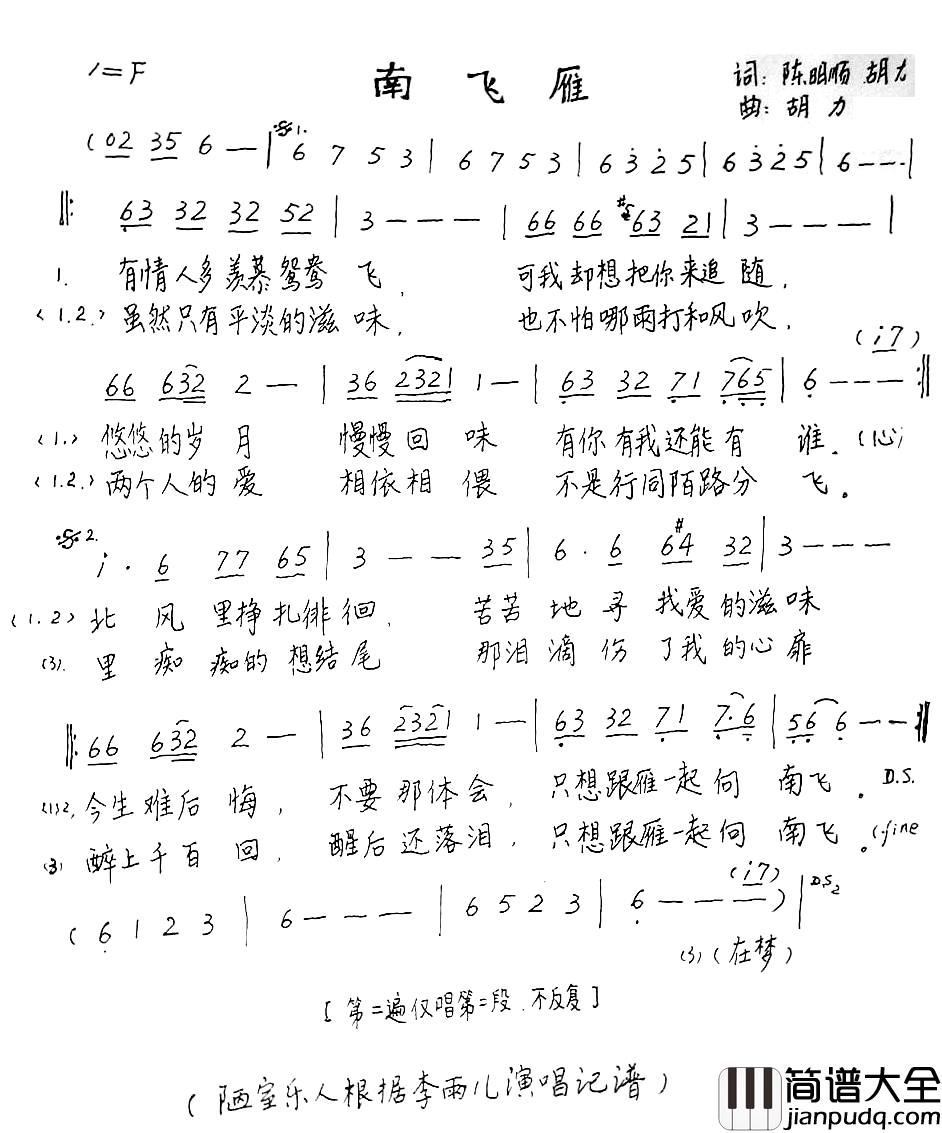 1=F
南飞雁
词：陈明顺 胡力
曲：胡力
(02 35 6 — | 𝄋1. 6 7 5 3 | 6 7 5 3 | 6 3 2 5 | 6 3 2 5 | 6 - - - |
‖: 63 32 32 52 | 3 - - - | 66 66 #63 21 | 3 - - - |
1. 有情人多羡慕鸳鸯飞， 可我却想把你来追随，
<1.2.> 虽然只有平淡的滋味， 也不怕哪雨打和风吹，
(i7)
66 632 2 — | 36 2321 1 — | 63 32 71 765 | 6 - - - :‖
<1.> 悠悠的岁月 慢慢回味 有你有我还能有谁。(心)
<1.2.> 两个人的爱 相依相偎 不是行同陌路分飞。
𝄋2. i · 6 77 65 | 3 — — 35 | 6 · 6 6#4 32 | 3 — — —
(1.2) 北风里挣扎徘徊， 苦苦地寻我爱的滋味
(3). 里痴痴的想结尾 那泪滴伤了我的心扉
‖: 66 632 2 — | 36 2321 1 — | 63 32 71 7·6 | 56 6 — — :‖
(1)2, 今生难后悔， 不要那体会， 只想跟雁一起向南飞。 D.S.
(3) 醉上千百回， 醒后还落泪， 只想跟雁一起向南飞。 (fine
(6 1 2 3 | 6 - - - | 6 5 2 3 | 6 — — —) | D.S2
(i7)
(3) (在梦)
[第二遍仅唱第二段.不反复]
(陋室乐人根据李雨儿演唱记谱)
简谱大全
jianpudq.com